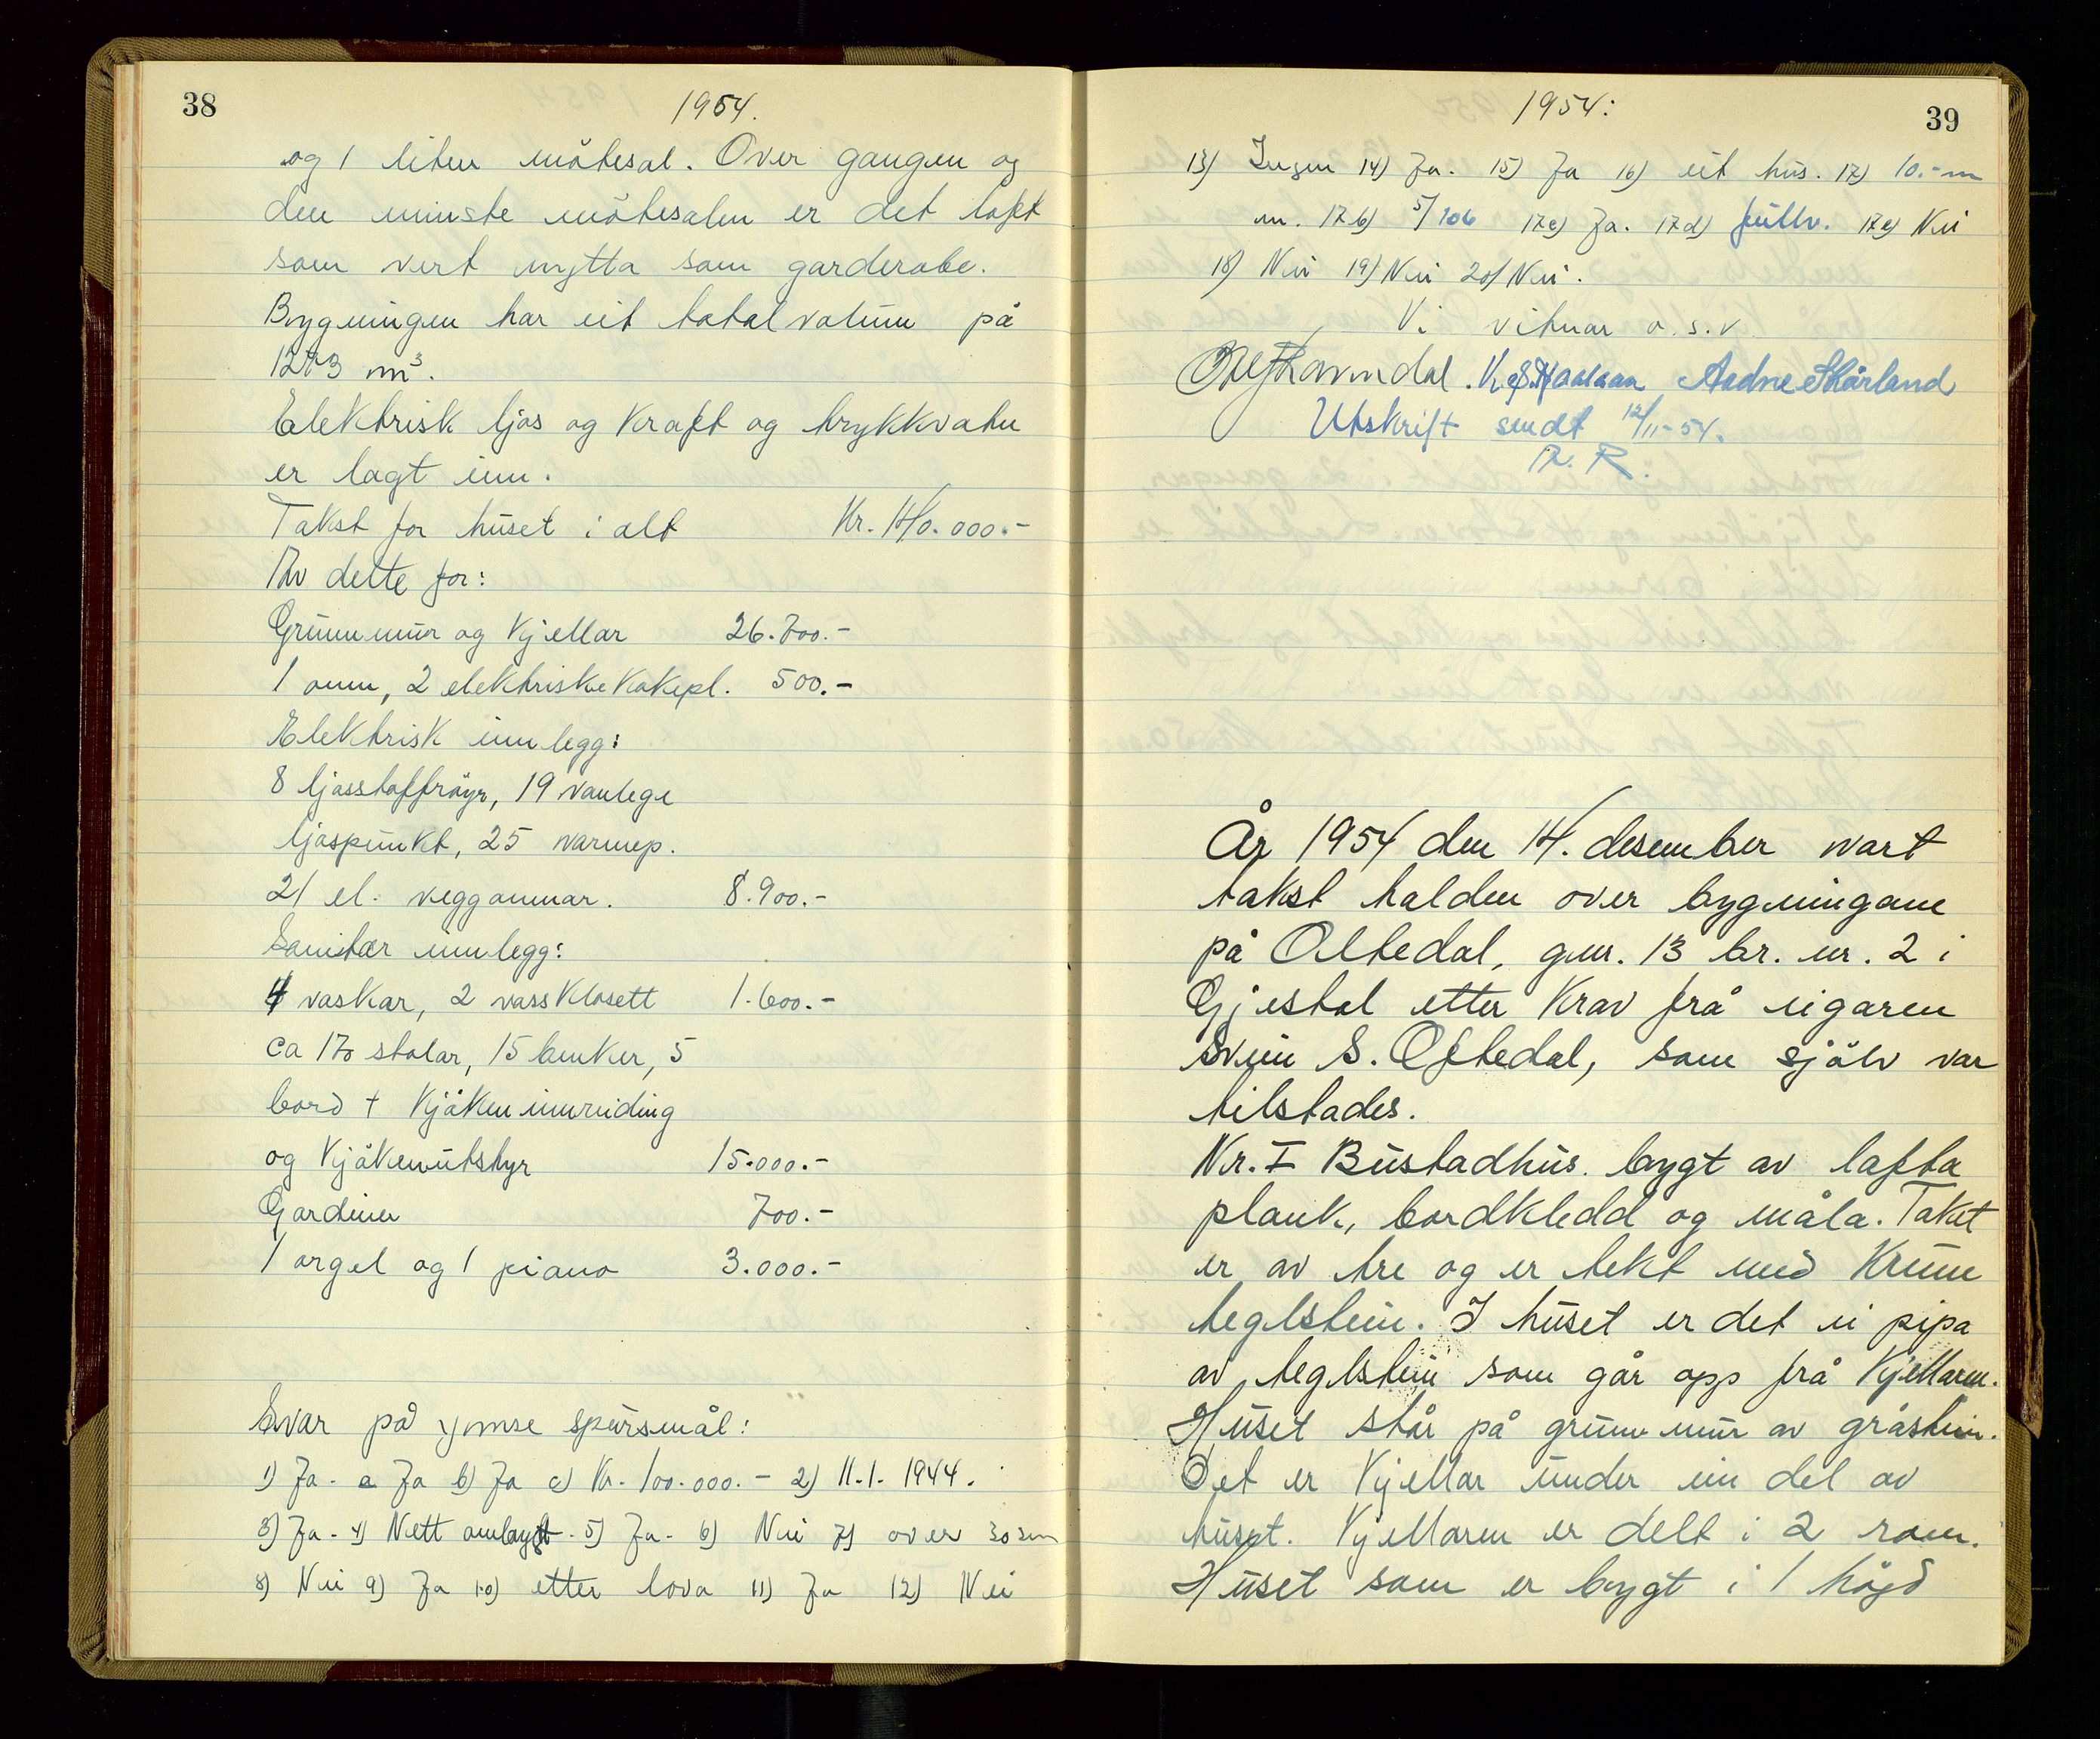 38
1954.
og 1 liten mötesal. Over gangen og
den minste mötesalen er det loft
som vert nytta som garderobe.
Bygningen har eit totalvolum på
1273 m³.
Elektrisk ljos og kraft og trykkvatn
er lagt inn.
Takst for huset i alt Kr. 140.000.-
Av dette for:
Grunnmur og kjellar 26.700.-
1 omn, 2 elektriske kokepl. 500.-
Elektrisk innlegg:
8 ljosstoffröyr, 19 vanlege
ljospunkt, 25 varmep.
21 el. veggomnar. 8.900.-
Sanitær innlegg:
4 vaskar, 2 vassklosett 1.600.-
ca 170 stolar, 15 benker, 5
bord + kjökeninnreiding
og kjökenutstyr 15.000.-
Gardiner 700.-
1 orgel og 1 piano 3.000.-
Svar på ymse spursmål:
1) Ja - a Ja b) Ja c) Kr. 100.000.- 2) 11.1. 1944.
3) Ja - 4) Nett ombygt - 5) Ja - 6) Nei 7) over 30 cm
8) Nei 9) Ja 10) etter lova 11) Ja 12) Nei
1954:
39
13) Ingen 14) Ja. 15) Ja 16) eit hus. 17) 10.- m
m. 17b) 5/106 17c) Ja. 17d) fullv. 17e) Nei
18) Nei 19) Nei 20) Nei.
Vi vitnar o.s.v.
Aadne Skårland
Utskrift sendt 12/11-54.
R. R.
År 1954 den 14. desember vart
takst halden over bygningane
på Oltedal, gnr. 13 br. nr. 2 i
Gjestal etter krav frå eigaren
Svein S. Oftedal, som sjölv var
tilstades.
Nr. I Bustadhus. bygt av lafta
plank, bordkledd og måla. Taket
er av tre og er tekt med krum
teglstein. I huset er det ei pipa
av teglstein som går opp frå kjellaren.
Huset står på grunnmur av gråstein.
Det er kjellar under ein del av
huset. Kjellaren er delt i 2 rom.
Huset som er bygt i 1 högd